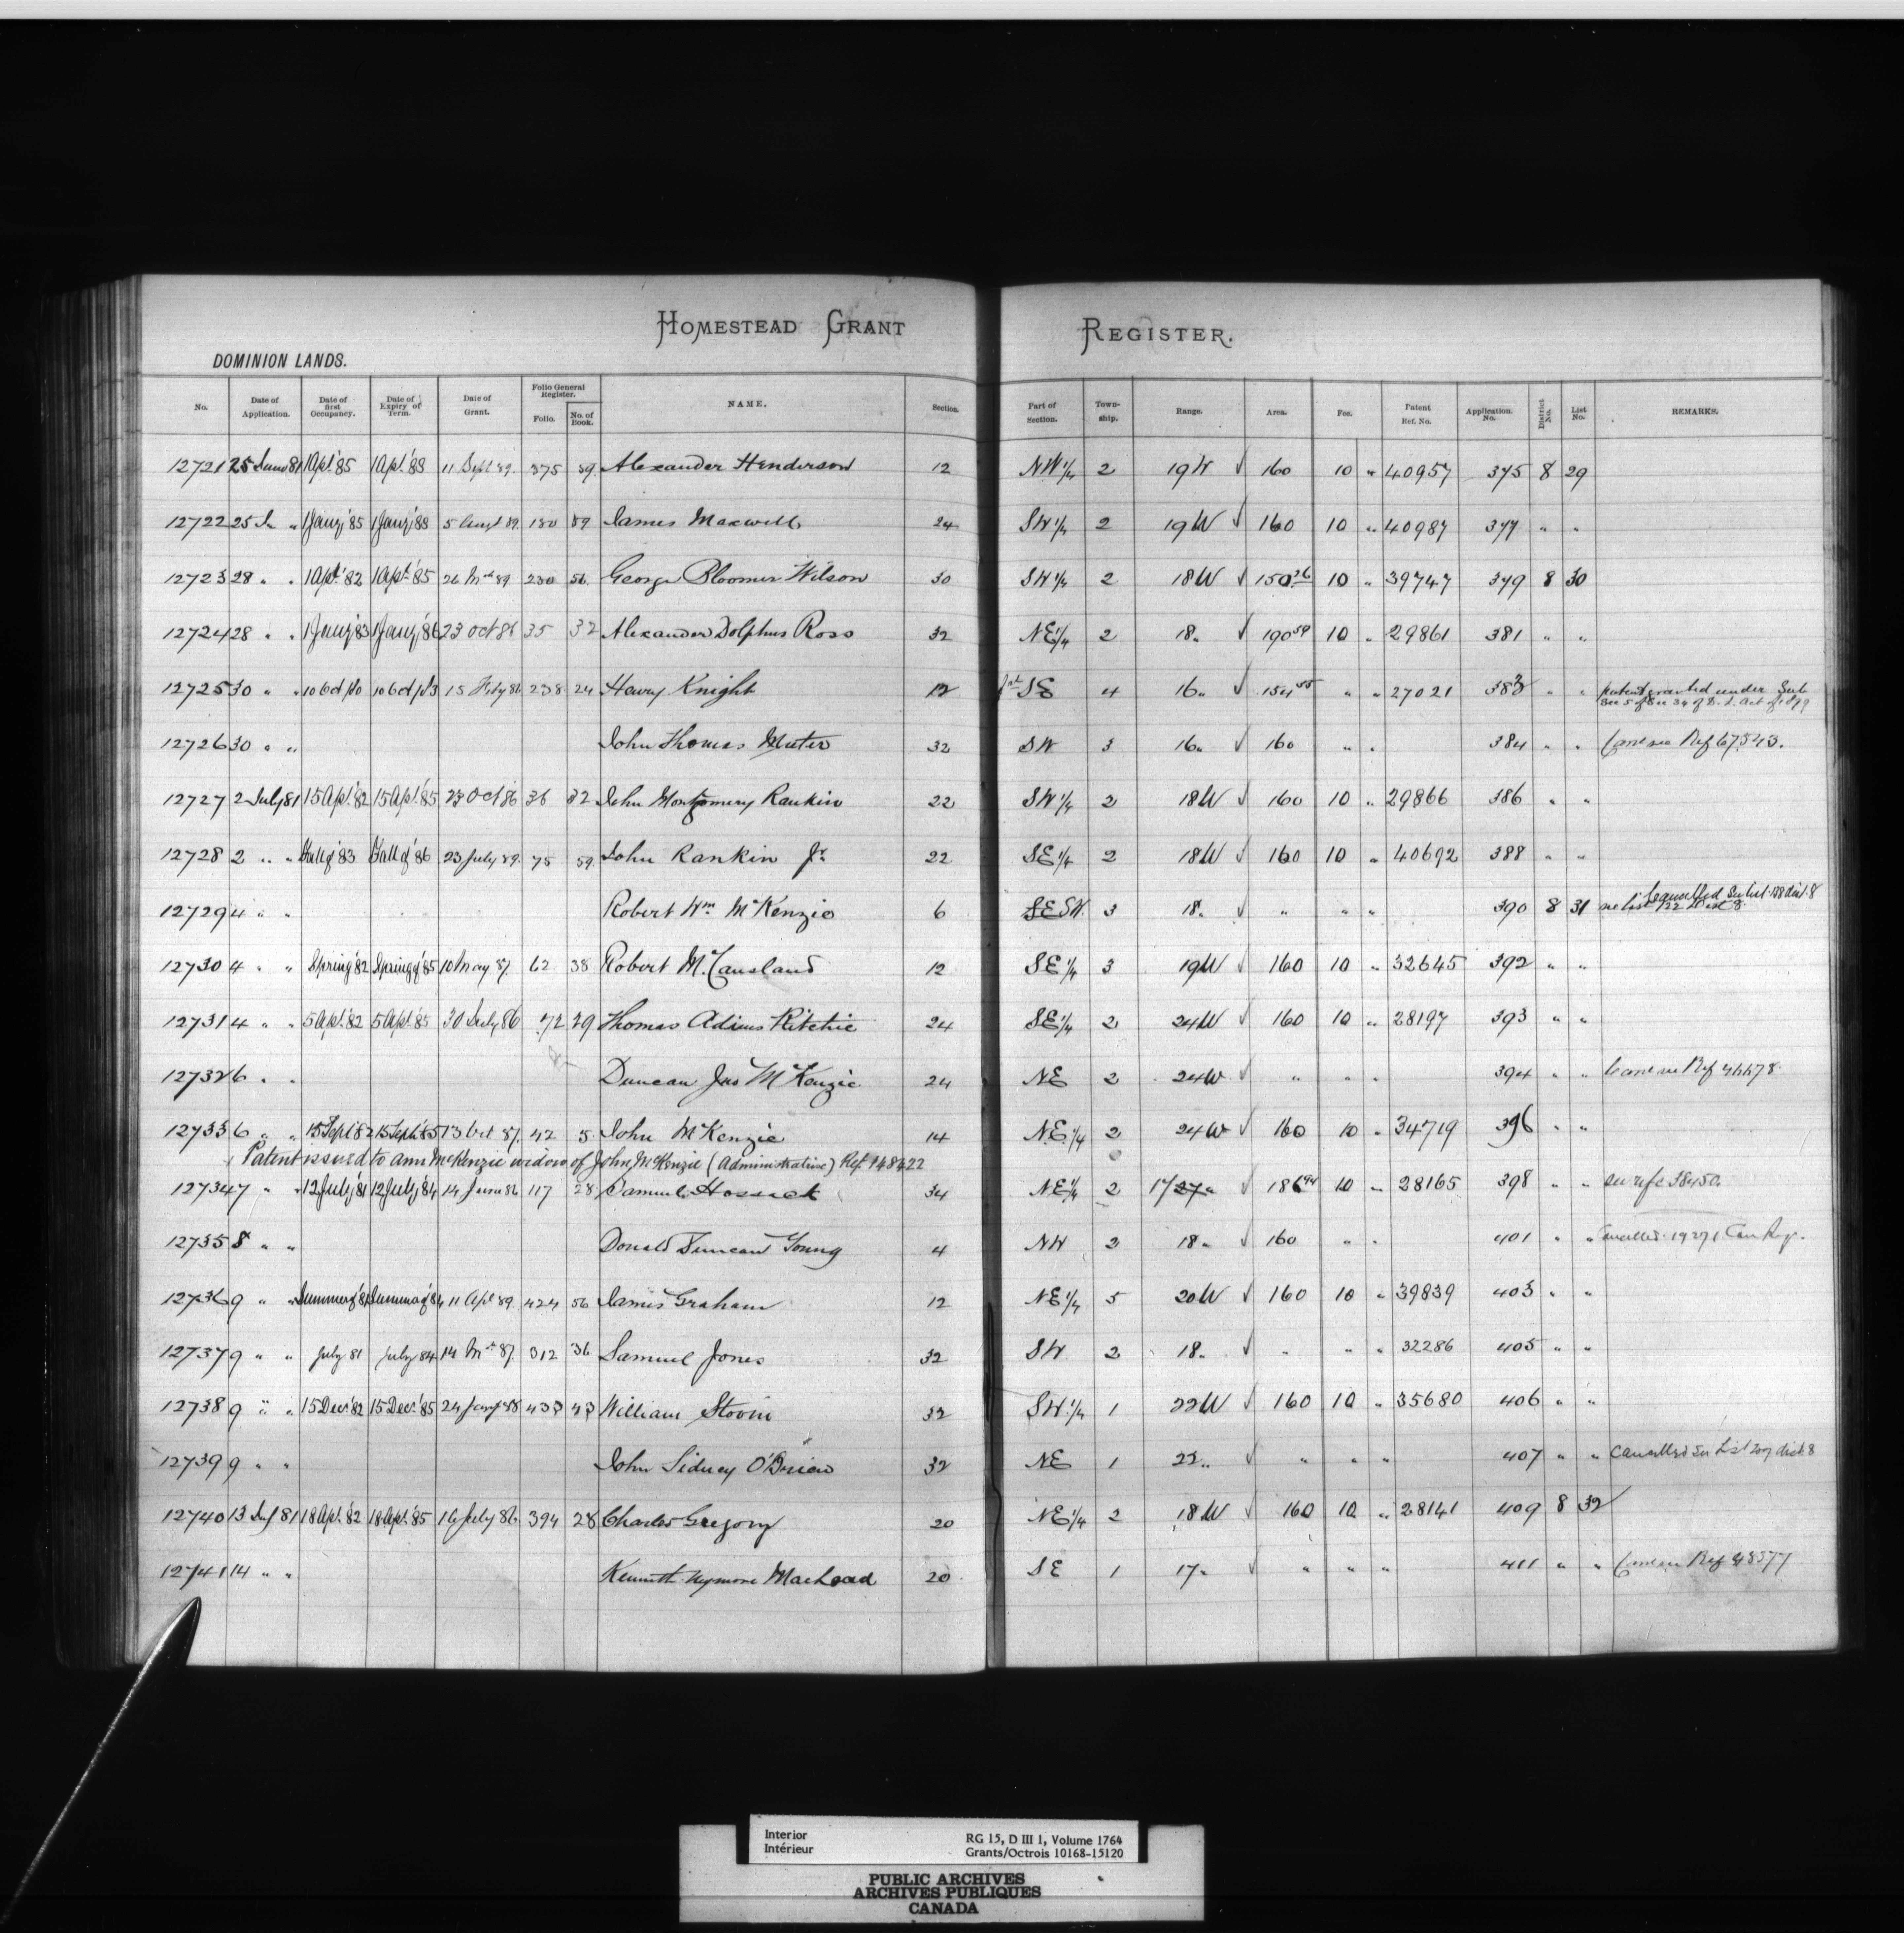 HOMESTEAD GRANT REGISTER.
DOMINION LANDS.
No. Date of Application. Date of first Occupancy. Date of Expiry of Term. Date of Grant. Folio General Register. Folio. No. of Book. NAME. Section. Part of Section. Town-ship. Range. Area. Fee. Patent Ref. No. Application. No. District No. List No. REMARKS.
12721 25 June 81 1 Apl. '85 1 Apl. '88 11 Sept 89. 375 59. Alexander Henderson 12 N.W 1/4 2 19 W √ 160 10 " 40957 375 8 29
12722 25 Ju " 1 Jany '85 1 Jany '88 5 Augt 89. 180 59 James Maxwell 24 SW 1/4 2 19 W √ 160 10 " 40987 377 " "
12723 28 " " 1 Apl. '82 1 Apl. '85 26 Mch 89 230 56. George Bloomer Wilson 30 SW 1/4 2 18 W √ 150 26 10 " 39747 379 8 30
12724 28 " " 1 Jany '83 1 Jany '86 23 Oct 86 35 32 Alexander Dolphus Ross 32 NE 1/4 2 18 " √ 190 59 10 " 29861 381 " "
12725 30 " " 10 6 15 Feby 86 238 24 Henry Knight 12 SE 4 16 " √ 154 55 " " 27021 383 " " patent granted under Sub
Sec 5 of Sec 34 of D. L. Act of 1879
12726 30 " " John Thomas Muter 32 SW 3 16 " √ 160 " " 384 " " Canc see Ref 67543.
12727 2 July 81 15 Apl. '82 15 Apl. '85 23 Oct 86 36 32 John Montgomery Rankin 22 SW 1/4 2 18 W √ 160 10 " 29866 386 " "
12728 2 " " Fall of '83 Fall of '86 23 July 89. 75 59. John Rankin Jr. 22 SE 1/4 2 18 W √ 160 10 " 40692 388 " "
12729 4 " " Robert Wm. McKenzie 6 SE SW. 3 18 " √ " " " 390 8 31 Cancelled See List 138 dist. 8
see list 122 Dist 8.
12730 4 " " Spring '82 Spring of '85 10 May 87. 62 38 Robert McCausland 12 SE 1/4 3 19 W √ 160 10 " 32645 392 " "
12731 4 " " 5 Apl. '82 5 Apl. '85 30 July 86 72 29 Thomas Adims Ritchie 24 SE 1/4 2 24 W √ 160 10 " 28197 393 " "
12732 6 " " Duncan Jas McKenzie 24 NE 2 24 W. √ " " " 394 " " Canc see Ref 46678.
12733 6 " " 15 Sept 82 15 Sept. 85 13 Oct 87. 42 5. John McKenzie 14 N.E. 1/4 2 24 W √ 160 10 " 34719 396 " "
Patent issued to Ann McKenzie widow of John McKenzie (Administrative) Ref. 148422
12734 7 " " 12 July '81 12 July '84 14 June 86 117 28 Samuel Hossack 34 NE 1/4 2 17 27 " √ 186 94 10 " 28165 398 " " see refce 38450.
12735 8 " " Donald Duncan Young 4 NW 2 18 " √ 160 " " 401 " " Cancelled. 19271 Can Reg.
12736 9 " " Summer of '81 Summer of '84 11 Apl 89. 424 56 James Graham 12 NE 1/4 5 20 W √ 160 10 " 39839 403 " "
12737 9 " " July 81 July 84 14 Mch 87. 312 36 Samuel Jones 32 SW 2 18 " √ " " " 32286 405 " "
12738 9 " " 15 Dec. '82 15 Dec. '85 24 Jany 88 433 43 William Stovin 32 SW. 1/4 1 22 W √ 160 10 " 35680 406 " "
12739 9 " " John Sidney O'Brien 32 NE 1 22 " √ " " " 407 " " Cancelled See List 207 dist. 8
12740 13 July 81 18 Apl. '82 18 Apl. '85 16 July 86. 394 28 Charles Gregory 20 NE 1/4 2 18 W √ 160 10 " 28141 409 8 32
12741 14 " " Kenneth MacLead 20 SE 1 17 " √ " " " 411 " " Canc see Ref 48577
Interior
Intérieur
RG 15, D III 1, Volume 1764
Grants/Octrois 10168-15120
PUBLIC ARCHIVES
ARCHIVES PUBLIQUES
CANADA